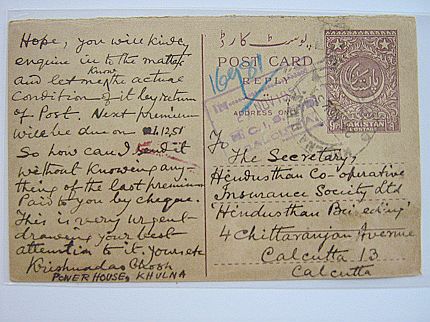 Hope, you will kindly
enquire in to the matter
and let me know the actual
Condition of it by return
of Post. Next premium
will be due on 1.12.51
So how can I send it
without Knowing any-
thing of the last premium
Paid to you by cheque.
This is very urgent
drawing your best
attention to it. Yours etc
Krishnadas Ghosh
POWER HOUSE, KHULNA
پوسٹ کارڈ
POST CARD
REPLY
ADDRESS ON
PAKISTAN
POSTAGE
To
The Secretary,
Hindusthan Co-operative
Insurance Society Ltd
'Hindusthan Building'
4 Chittaranjan Avenue
Calcutta 13
Calcutta